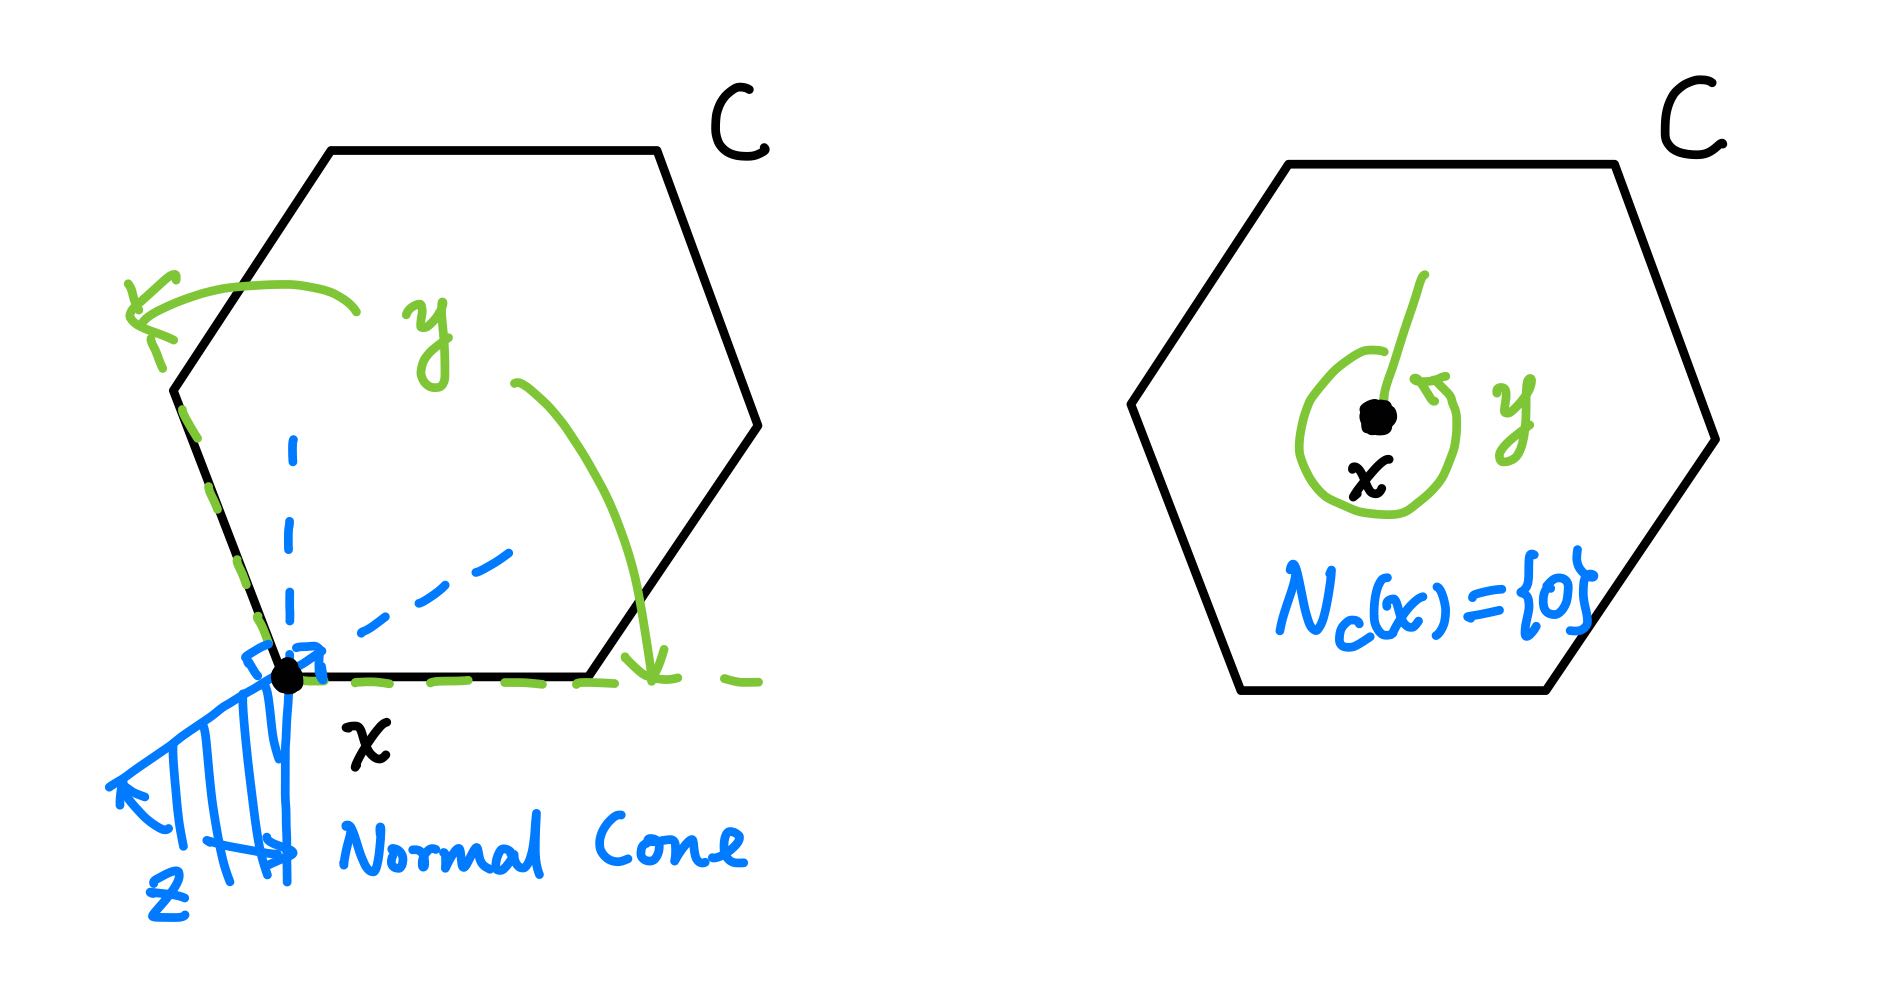 C
y
x
Normal Cone
z
C
y
x
N_C(x) = {0}